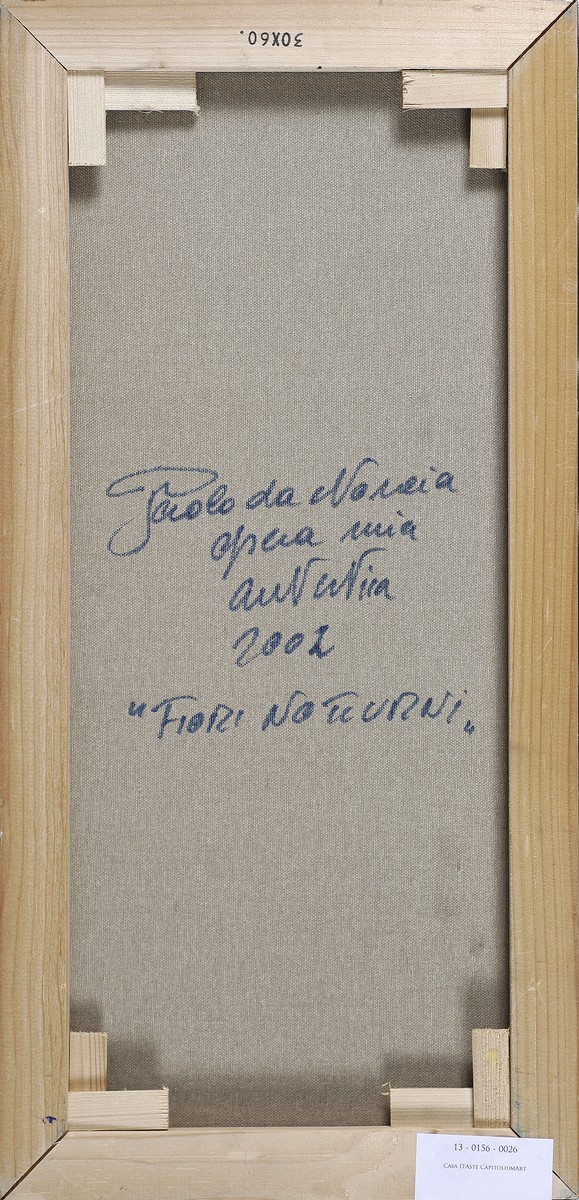 30X60.
Paolo da Norcia
opera mia
autentica
2002
"FIORI NOTTURNI"
13 - 0156 - 0026
CASA D'ASTE CAPITOLIUMART